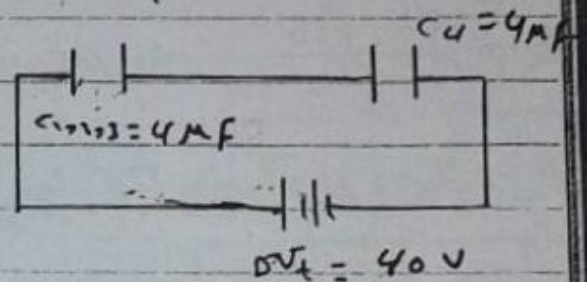 C4 = 4 μF
C1,2,3 = 4 μF
ΔVt = 40 V